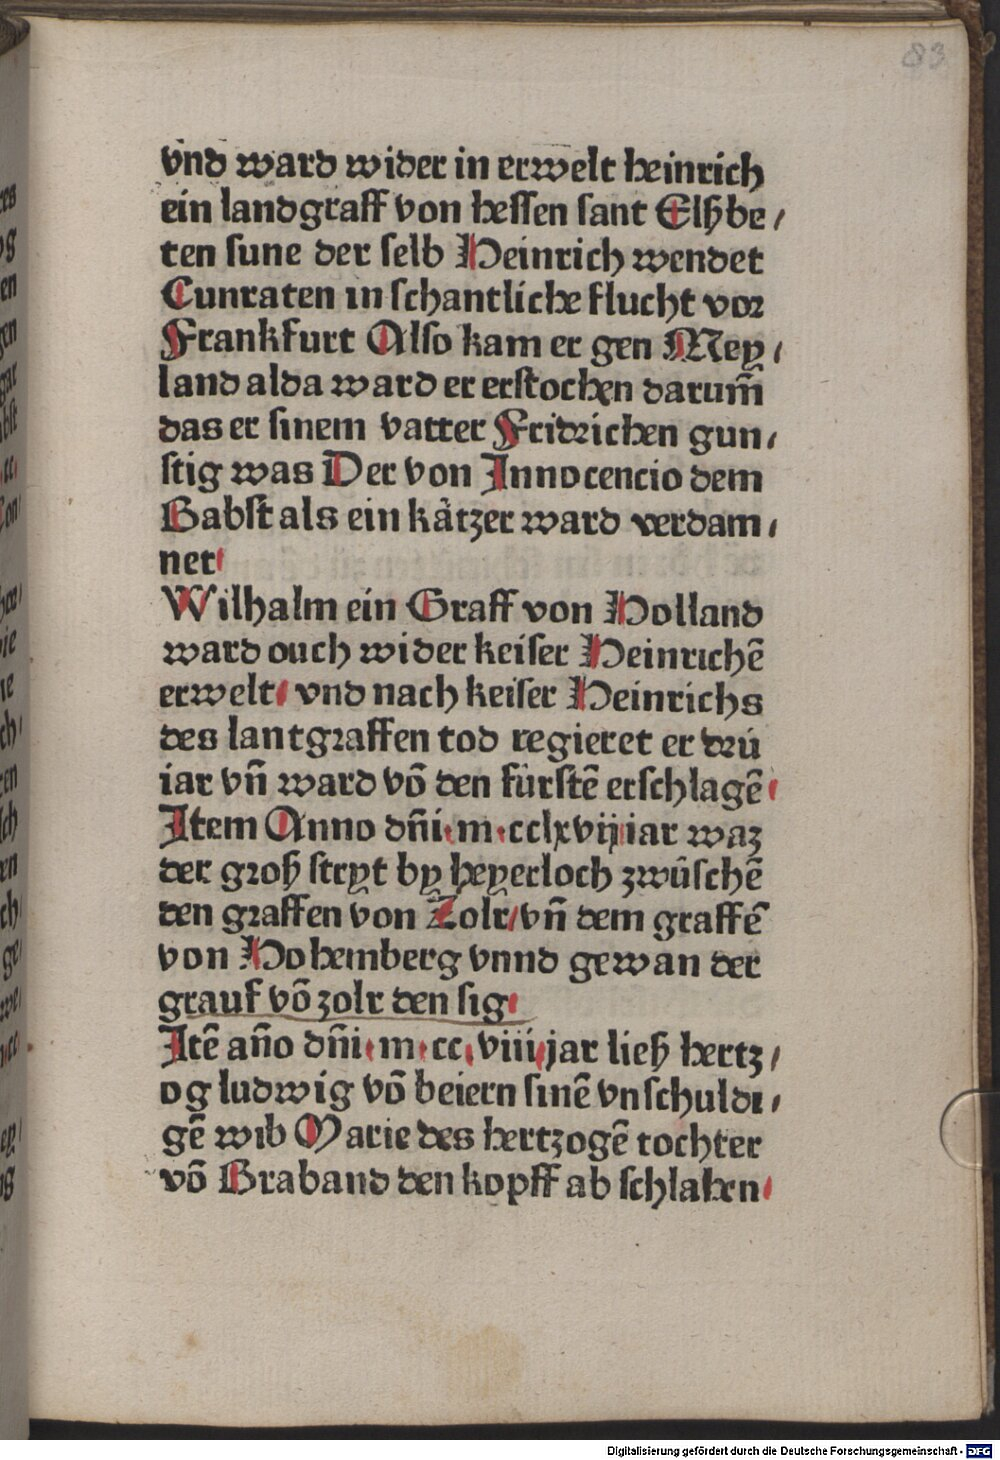 83
vnd ward wider in erwelt heinrich
ein landgraff von hessen sant Elßbe/
ten sune der selb Heinrich wendet
Cunraten in schantliche flucht vor
Frankfurt Also kam er gen Mey/
land alda ward er erstochen darum̃
das er sinem vatter Fridrichen gun/
stig was Der von Innocencio dem
Babst als ein kåtzer ward verdam/
net
Wilhalm ein Graff von Holland
ward ouch wider keiser Heinrichē
erwelt/ vnd nach keiser Heinrichs
des lantgraffen tod regieret er drü
iar vñ ward vō den fürstē erschlagē
Item Anno dñi m cclxvij iar waz
der groß stryt by heyerloch zwüschē
den graffen von Zolr/ vñ dem graffē
von Hohemberg vnnd gewan der
grauf vō zolr den sig
Itē año dñi m cc lviii jar ließ hertz/
og ludwig vō beiern sinē vnschuldi/
gē wib Marie des hertzogē tochter
vō Braband den kopff ab schlahen
Digitalisierung gefördert durch die Deutsche Forschungsgemeinschaft - DFG